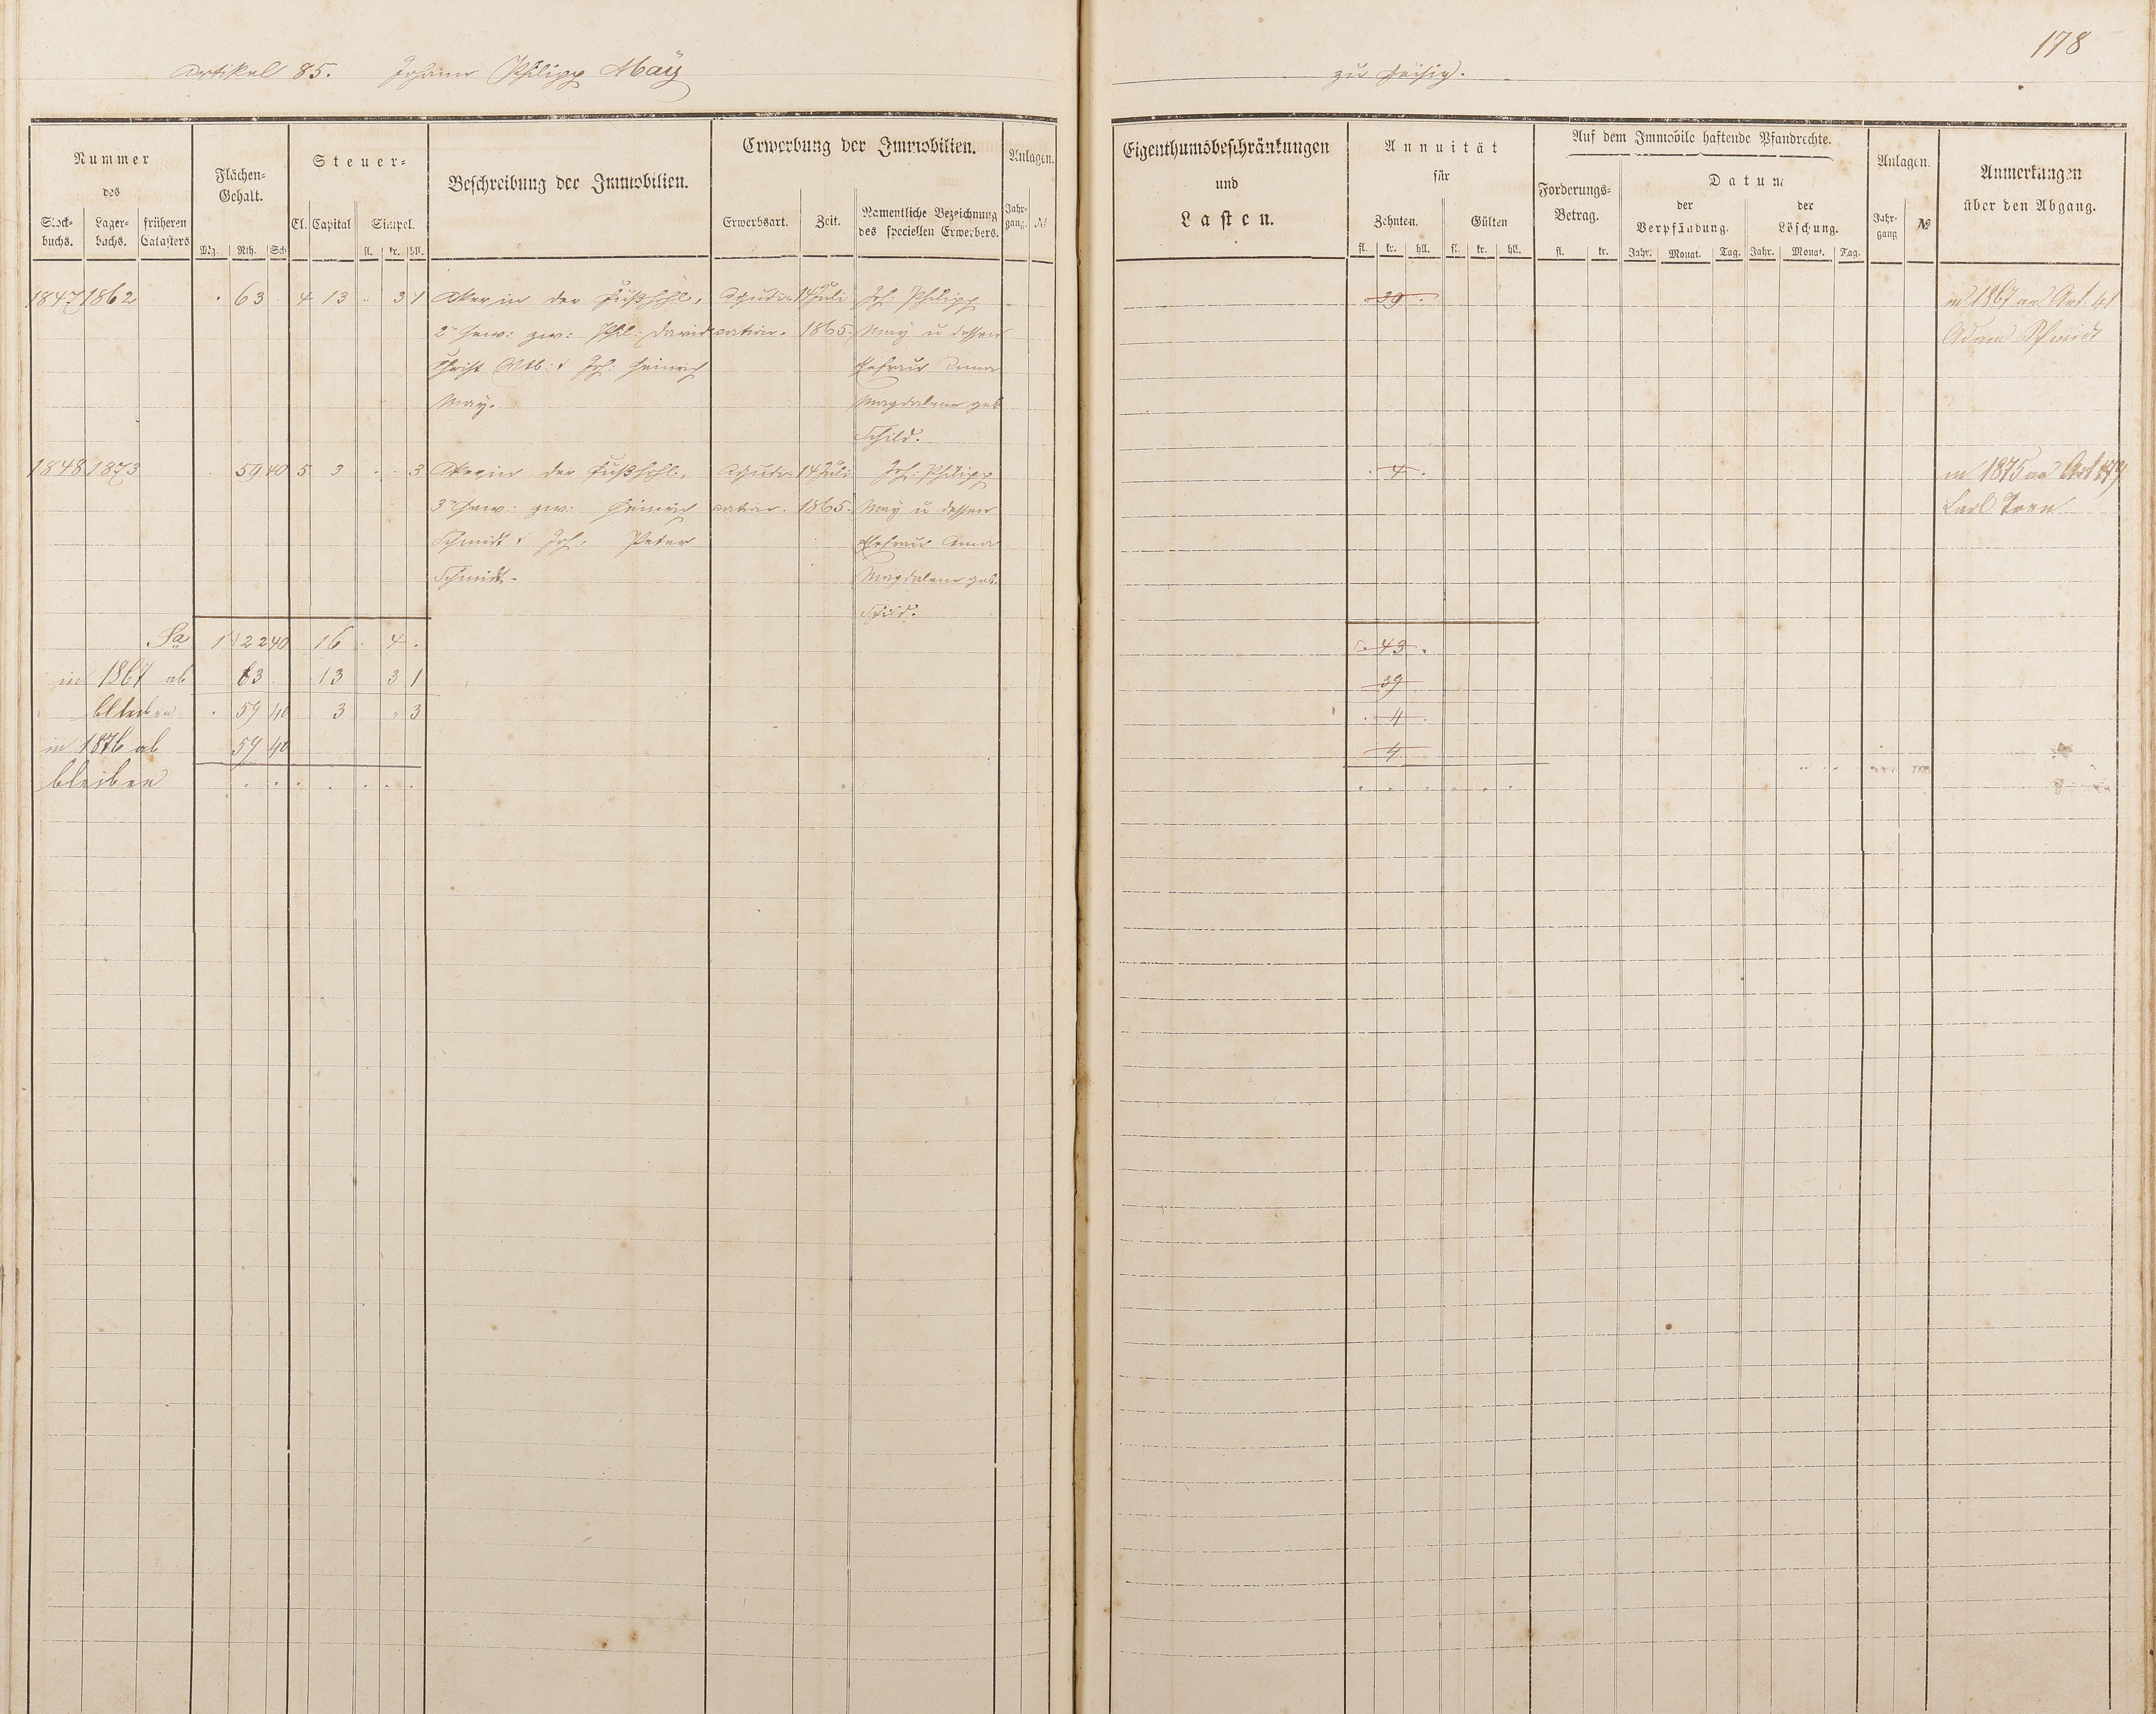 178
Artikel 85. Johann Philipp Maÿ
zu
Nummer
des
Stock-
buchs.
Lager-
buchs.
früheren
Catasters
Flächen-
Gehalt.
Mg. Rth. Sch
Steuer-
Cl. Capital Simpel.
fl. kr. hll.
Beschreibung der Immobilien.
Erwerbung der Immobilien.
Erwerbsart. Zeit.
Namentliche Bezeichnung
des speciellen Erwerbers.
Anlagen.
Jahr-
gang. №
Eigenthumsbeschränkungen
und
Lasten.
Annuität
für
Zehnten. Gülten
fl. kr. hll. fl. kr. hll.
Auf dem Immobile haftende Pfandrechte.
Forderungs-
Betrag.
fl. kr.
Datum
der
Verpfändung.
der
Löschung.
Jahr. Monat. Tag. Jahr. Monat. Tag.
Anlagen.
Jahr-
gang №
Anmerkungen
über den Abgang.
1847 1862 63 4 13 3 1 Aker in der Fußhohl, Adjudi- 14 Juli Joh: Philipp 39 in 1867 an Art. 41
2te Gew: zw: Phil: David cation. 1865. Maÿ u dessen Adam Schmidt
Christ Wtb: & Joh: Heinrich Ehefrau Anna
Maÿ. Magdalene geb
Schild.
1848 1873 59 40 5 3 3 Aker in der Fußhohl, Adjudi- 14 Juli Joh: Philipp 4 in 1875 an Art 179
3te Gew: zw: Heinrich cation. 1865. Maÿ u dessen Carl
Schmidt & Joh: Peter Ehefrau Anna
Schmidt. Magdalene geb.
Schild.
Sa 1 22 40 16 4 43
in 1867 ab 63 13 3 1 39
bleiben 59 40 3 3 4
in 1876 ab 59 40 4
bleiben